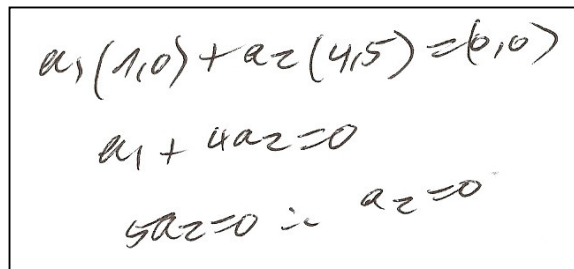 a₁(1,0)+a₂(4,5)=(0,0)
a₁+4a₂=0
5a₂=0 ∴ a₂=0